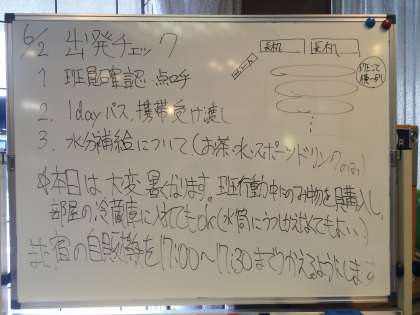 6/2 出発チェック
1 班員確認・点呼
2. 1dayパス、携帯受け渡し
3. 水分補給について(お茶・水・スポーツドリンクのみ)
本日は大変暑くなります。班行動中にのみ物を購入し、
部屋の冷蔵庫に入れてもok(水筒にうつしかえなくてもよい。)
また宿の自販機等を17:00〜17:30までつかえるようにします
長机 長机